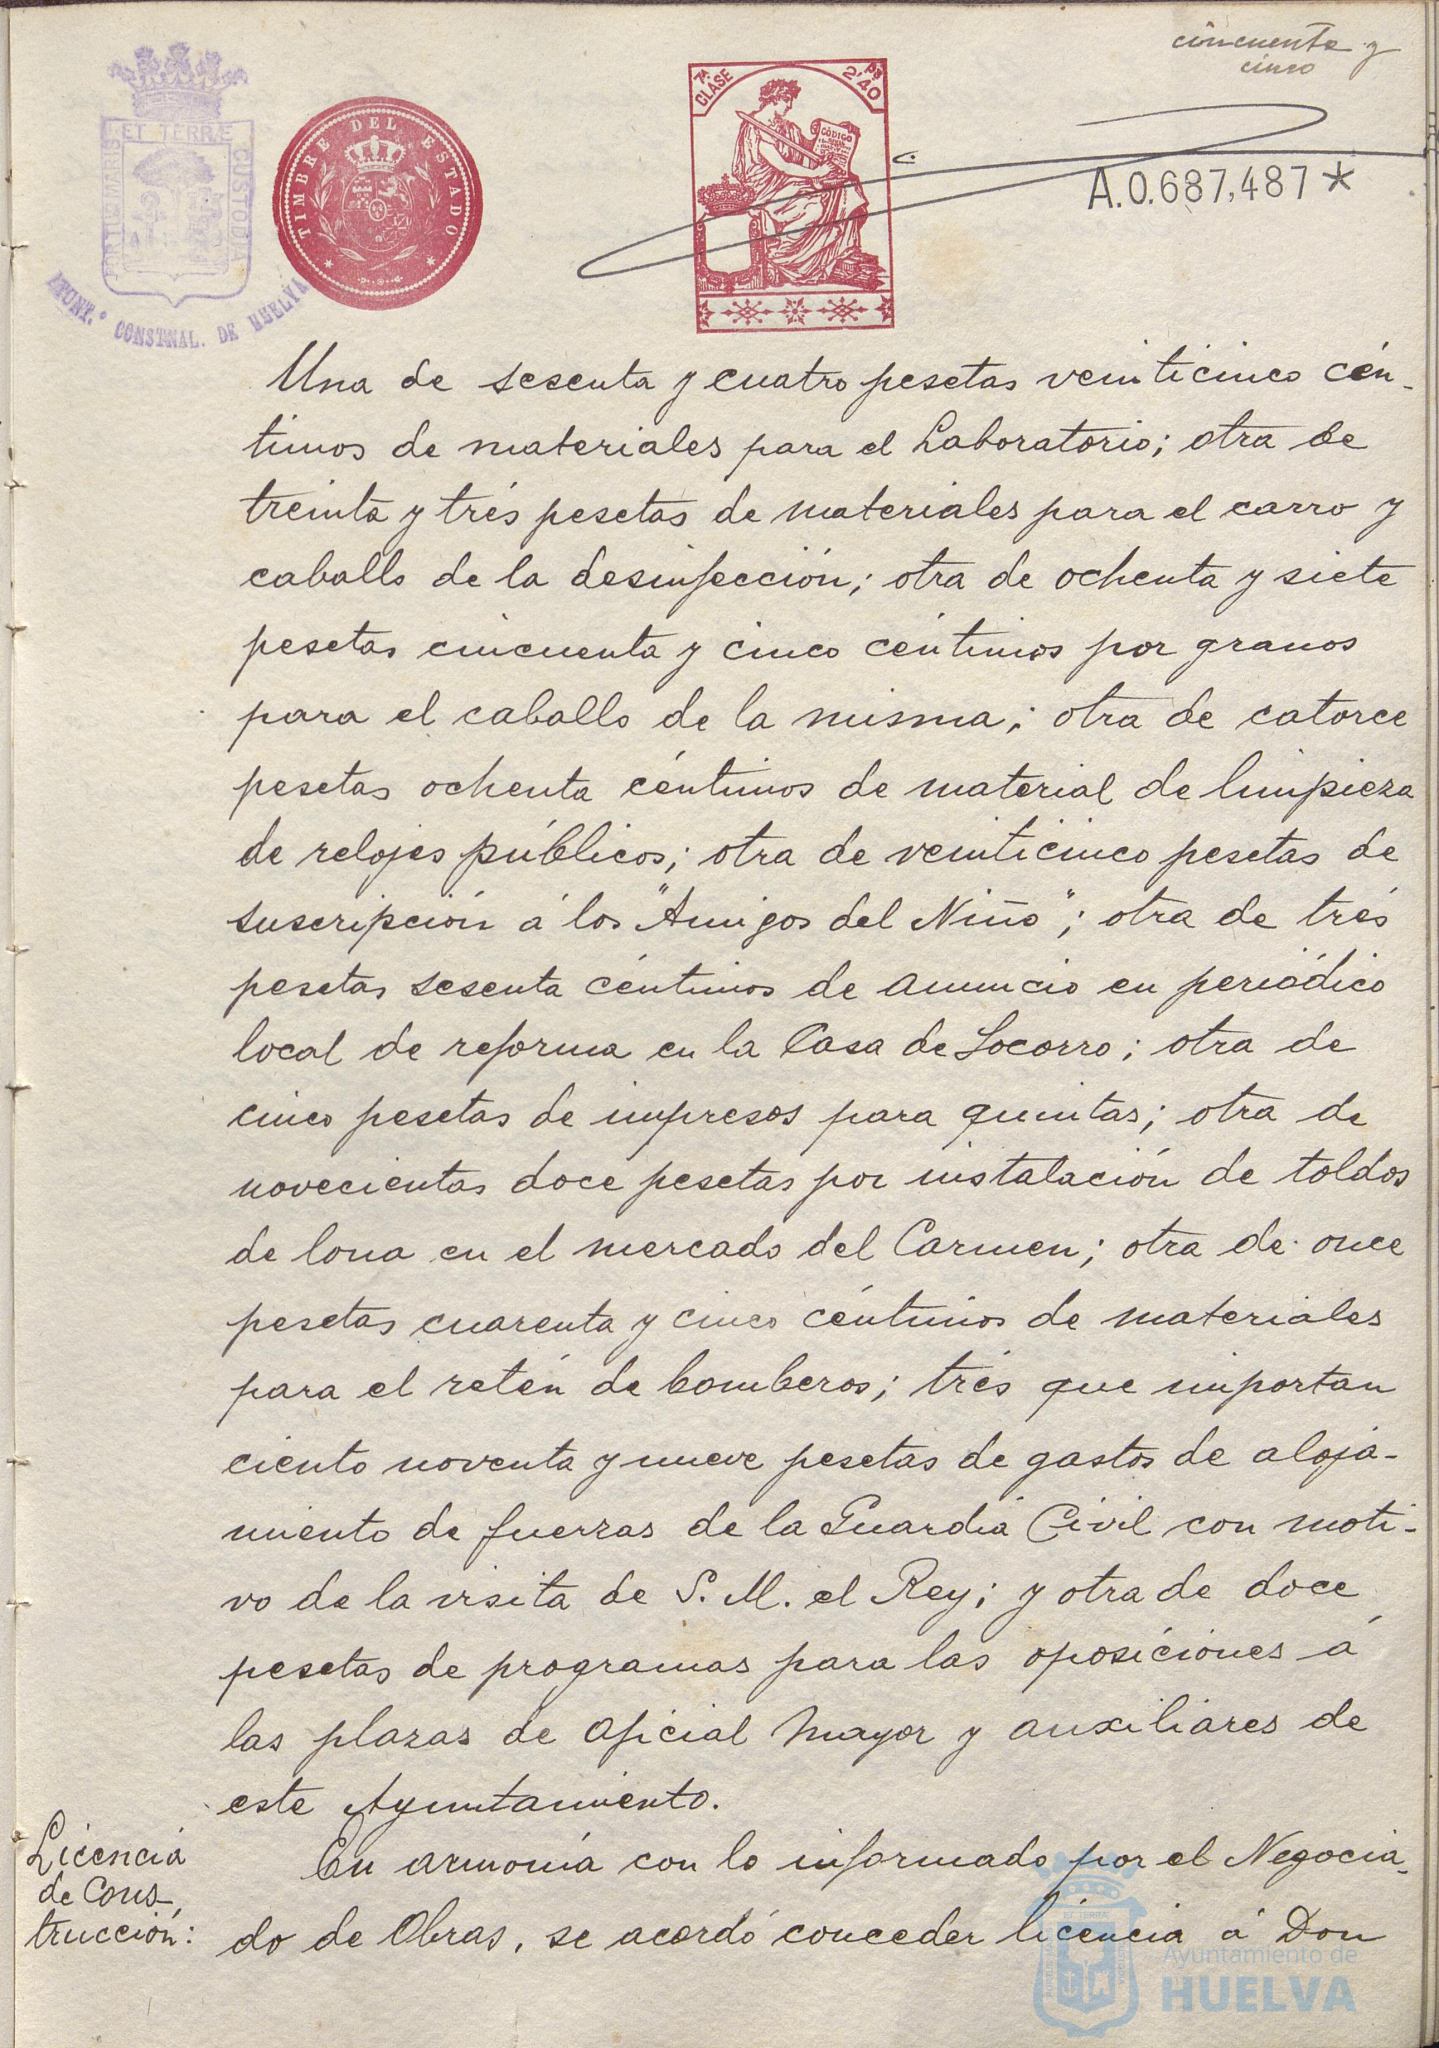 cincuenta y
cinco
PORTUS MARIS ET TERRÆ CUSTODIA
AYUNT.º CONSTNAL. DE HUELVA
TIMBRE DEL ESTADO
7ª CLASE
2'40 Ps
CÓDIGO
A.0.687,487*
Una de sesenta y cuatro pesetas veinticinco cén-
timos de materiales para el Laboratorio; otra de
treinta y trés pesetas de materiales para el carro y
caballo de la desinfección; otra de ochenta y siete
pesetas cincuenta y cinco céntimos por granos
para el caballo de la misma; otra de catorce
pesetas ochenta céntimos de material de limpieza
de relojes públicos; otra de veinticinco pesetas de
suscripción á los "Amigos del Niño"; otra de trés
pesetas sesenta céntimos de anuncio en periódico
local de reforma en la Casa de Socorro; otra de
cinco pesetas de impresos para quintas; otra de
novecientas doce pesetas por instalación de toldos
de lona en el mercado del Carmen; otra de once
pesetas cuarenta y cinco céntimos de materiales
para el retén de bomberos; trés que importan
ciento noventa y nueve pesetas de gastos de aloja-
miento de fuerzas de la Guardia Civil con moti-
vo de la visita de S. M. el Rey; y otra de doce
pesetas de programas para las oposiciones á
las plazas de oficial mayor y auxiliares de
este Ayuntamiento.
Licencia
de Cons-
trucción:
En armonía con lo informado por el Negocia-
do de Obras, se acordó conceder licencia á Don
Ayuntamiento de
HUELVA